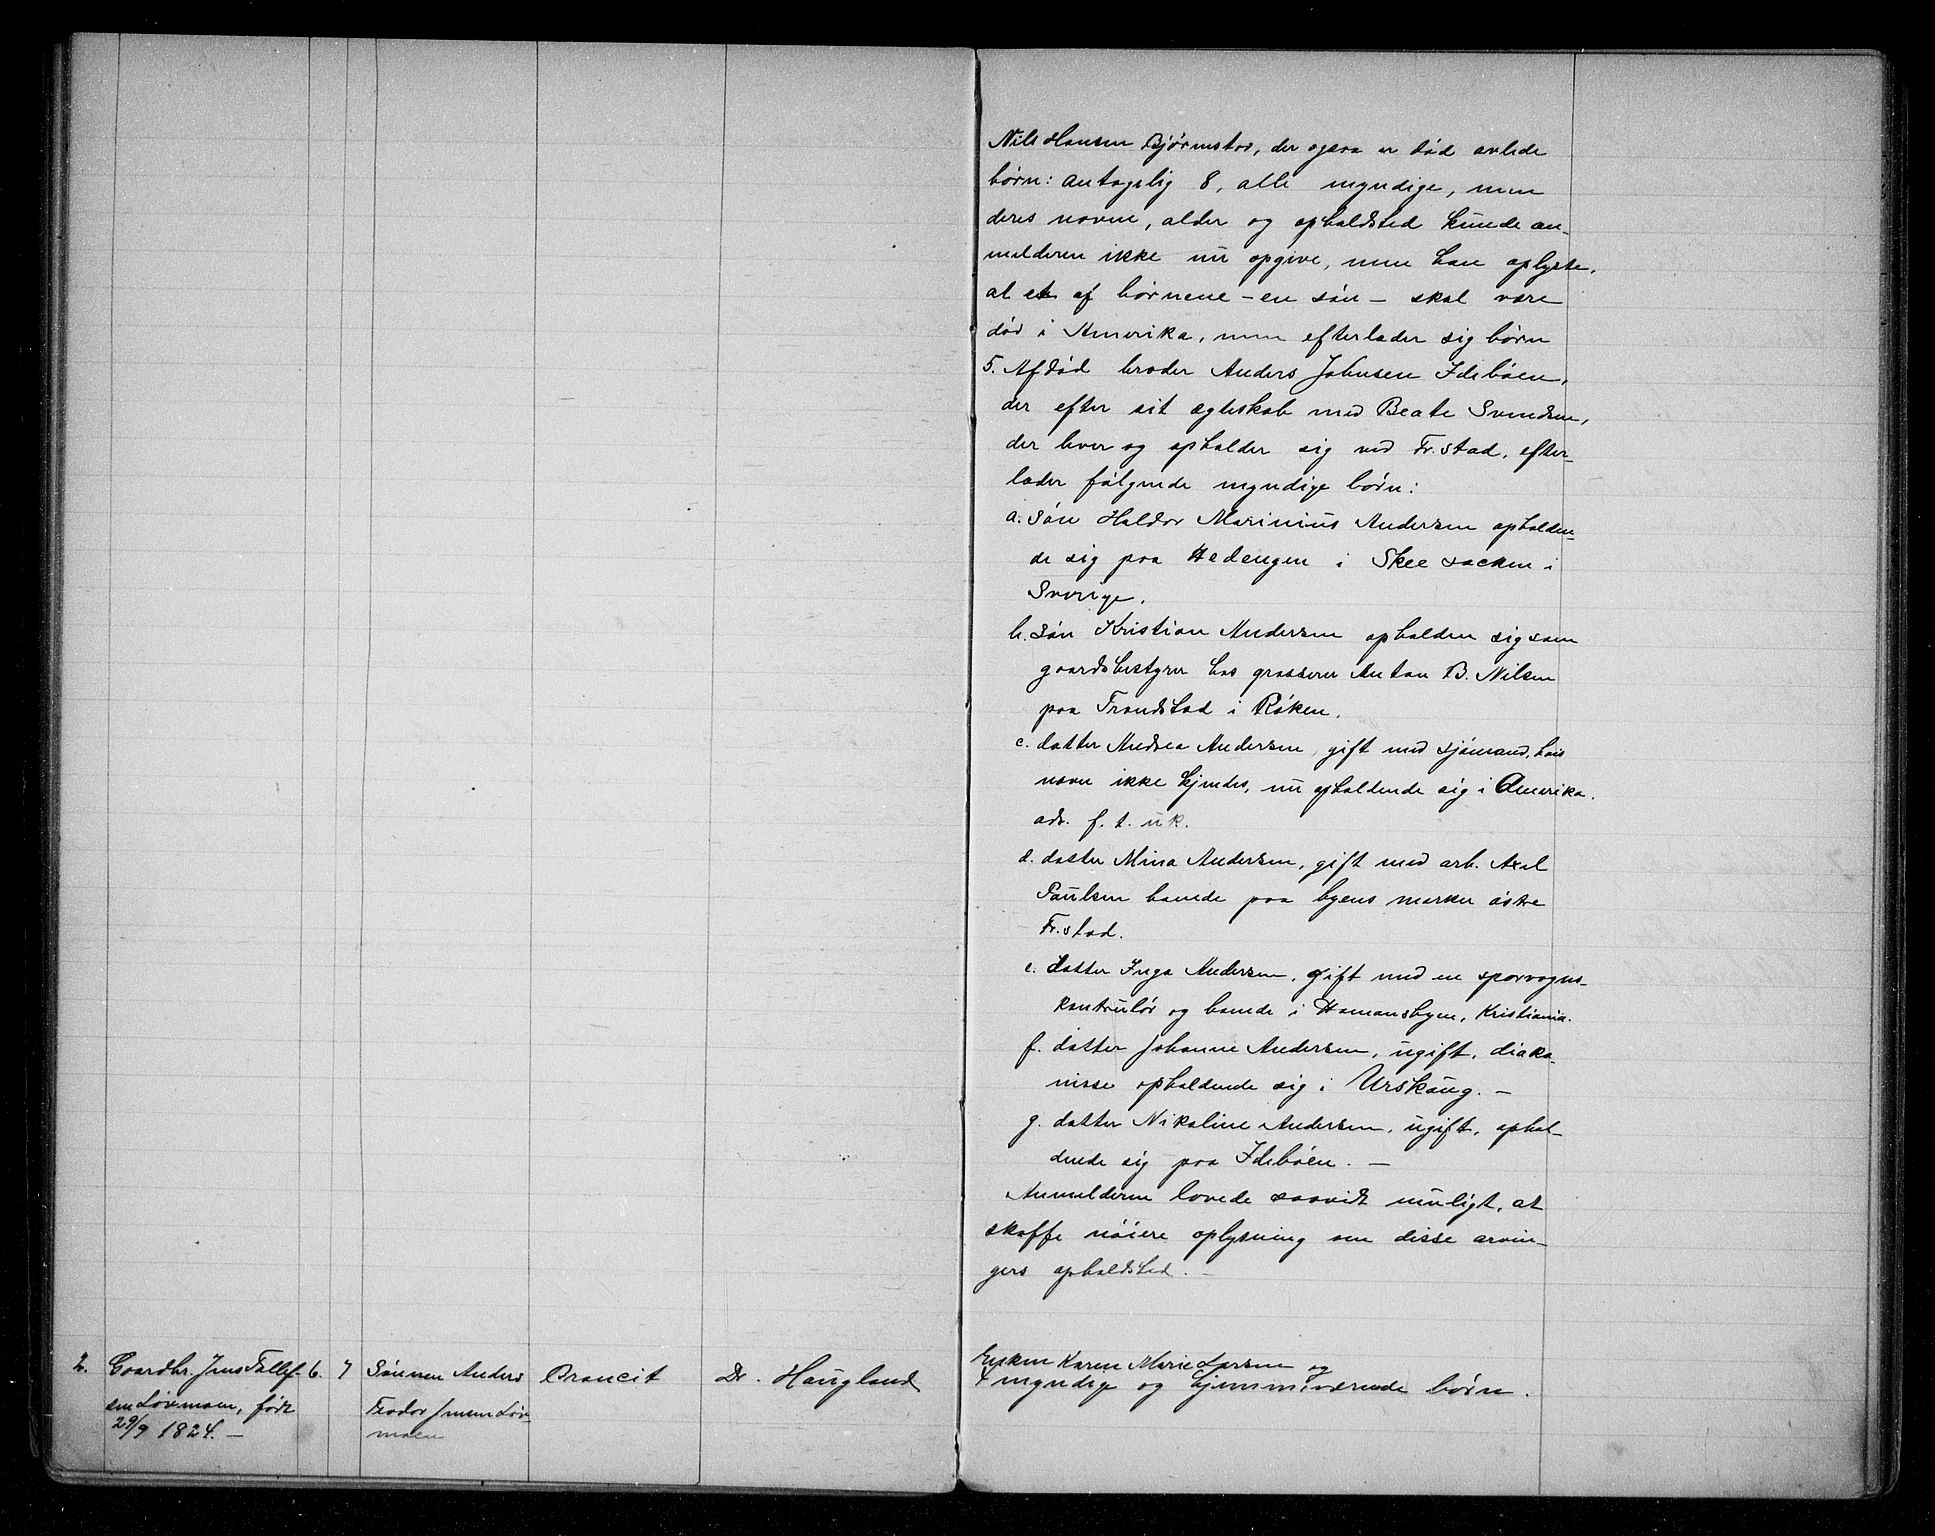 Nils Hansen Bjørnstad, der ogsaa er død avlede
børn: antagelig 8, alle myndige, men
deres navne, alder og opholdsted kunde an-
melderen ikke nu opgive, men han oplyste,
at et af børnene - en søn - skal være
død i Amerika, men efterlader sig børn
5. Afdød broder Anders Johnsen Idebøen,
der efter sit egteskab med Beate Svendsen,
der lever og opholder sig ved Fr.stad, efter-
lader følgende myndige børn:
a. søn Haldor Marinius Andersen opholden-
de sig paa Hedengen i Skee socken i
Sverige.
b. søn Kristian Andersen opholden sig som
gaardsbestyrer hos grosserer Anton B. Nilsen
paa Trandstad i Røken.
c. datter Andrea Andersen, gift med sjømand, hvis
navn ikke kjendes, nu opholdende sig i Amerika.
adr. f. t. uk.
d. datter Mina Andersen, gift med arb. Axel
Paulsen boende paa byens marker østre
Fr.stad.
e. datter Inga Andersen, gift med en sporvogns-
kontrulør og boende i Homansbyen, Kristiania.
f. datter Johanne Andersen, ugift, diako-
nisse opholdende sig i Urskoug. -
g. datter Nikoline Andersen, ugift, ophol-
dende sig paa Idebøen. -
Anmelderen lovede saavidt muligt, at
skaffe nøiere oplysning om disse arvin-
gers opholdsted. -
2. Gaardbr. Jens Tollef- 6. 7 Sønnen Anders Brancit Dr. Haugland Enken Karen Marie Larsen og
sen Løvmoen, født Teodor Jensen Løv- 4 myndige og hjemmeværende børn.
29/9 1824. - moen